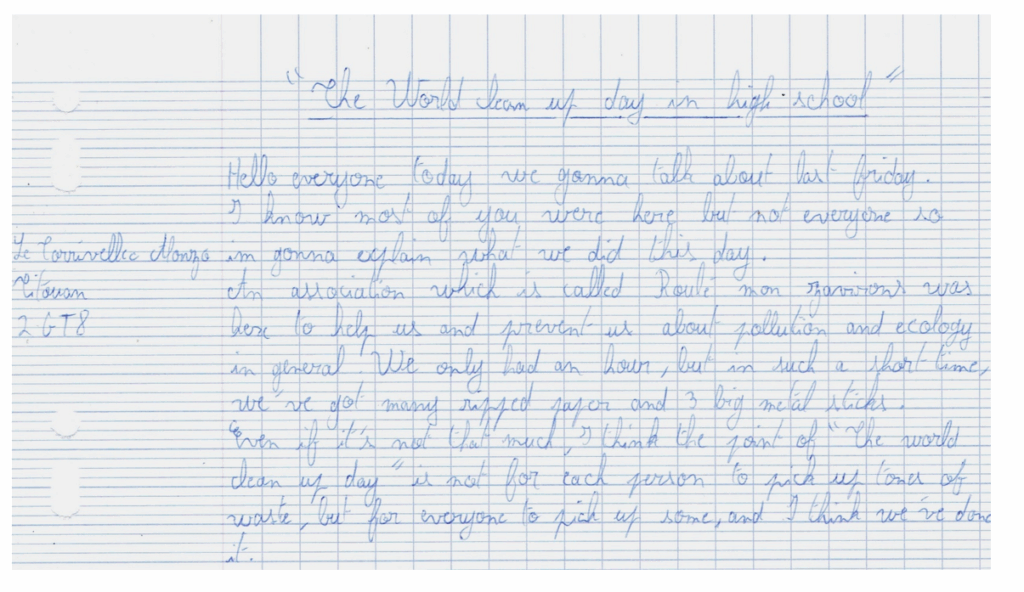 "The World clean up day in high-school"
Hello everyone today we gonna talk about last friday.
I know most of you were here but not everyone so
im gonna explain what we did this day.
Titouan
2GT8
An association which is called Route mon was
here to help us and prevent us about pollution and ecology
in general. We only had an hour, but in such a short time,
we've got many ripped paper and 3 big metal sticks.
Even if it's not that much, I think the point of "The world
clean up day" is not for each person to pick up tones of
waste, but for everyone to pick up some, and I think we've done
it.